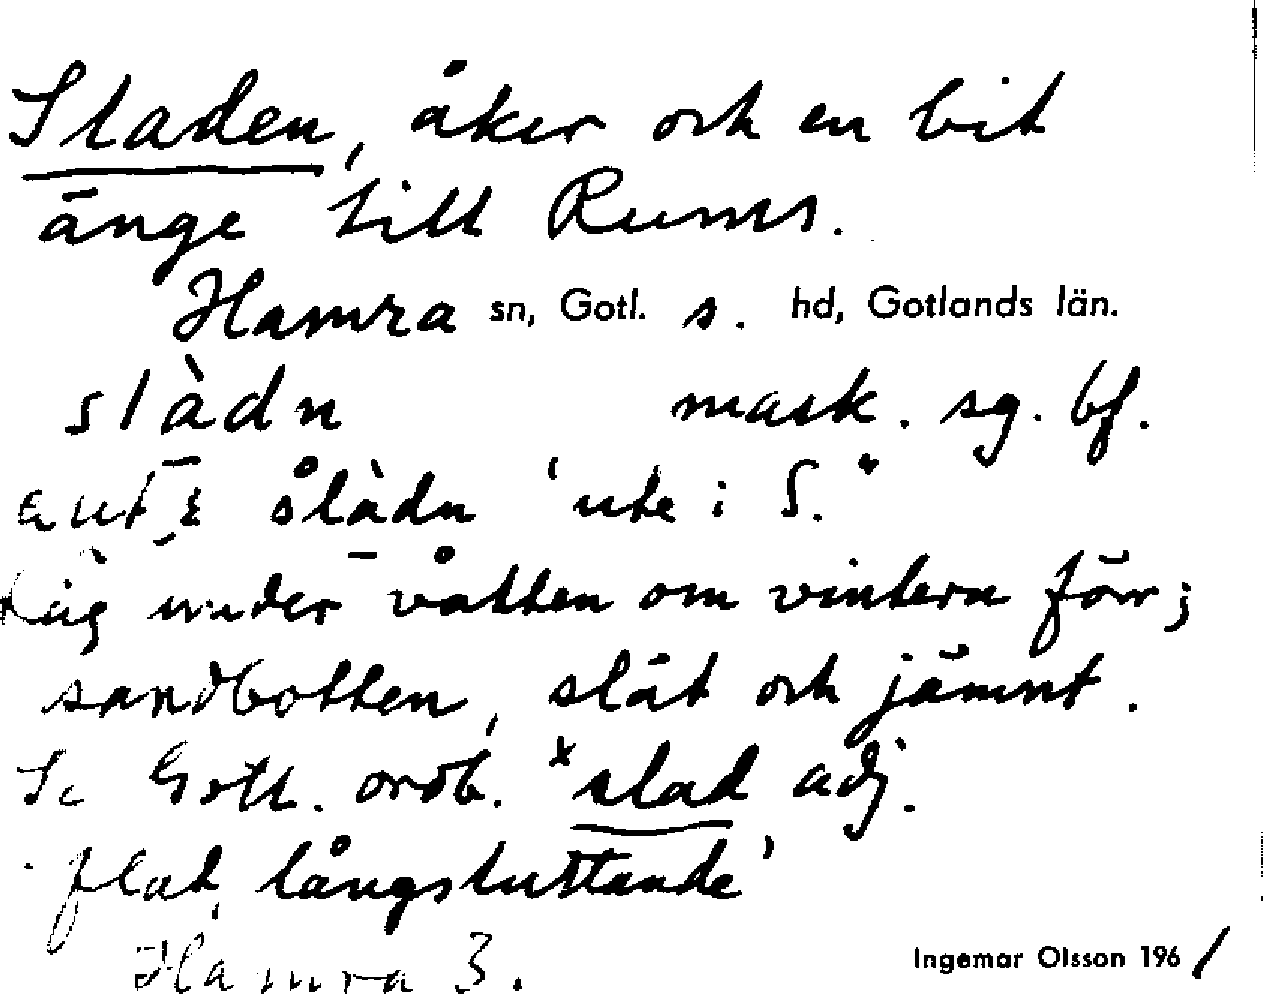 Sladen, åker och en bit
änge till Rums.
Hamra sn, Gotl. s. hd, Gotlands län.
slàdn mask. sg. bf.
slàdn 'ute i S."
Låg under vatten om vintern förr;
sandbotten, slät och jämnt.
Se Gotl. ordb. *slad adj.
'flat, långsluttande'
Hamra 3.
Ingemar Olsson 1961